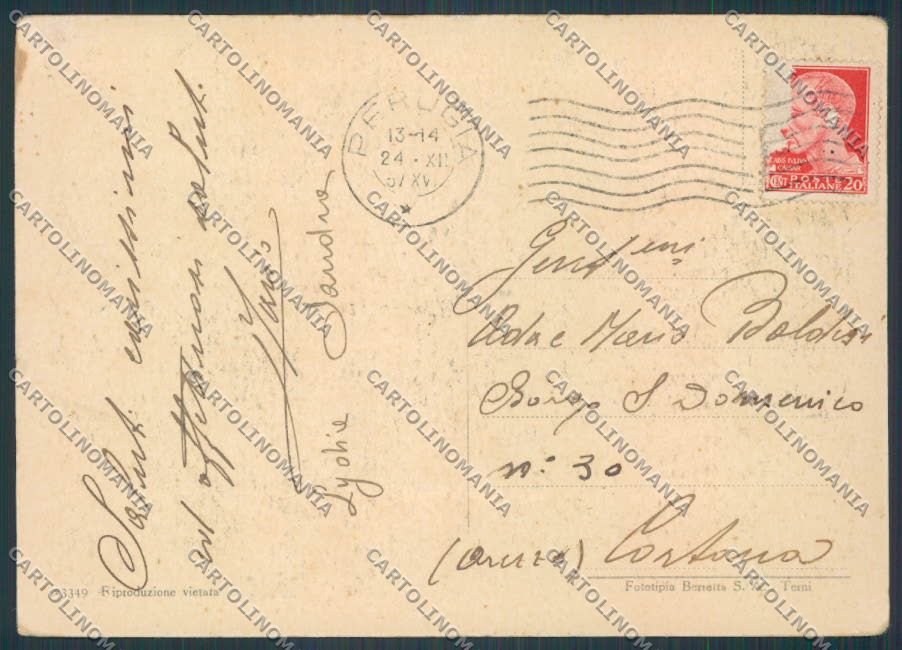 PERUGIA
13-14
24 · XII
37 XV
CAIVS IVLIVS
CAESAR
CENT POSTE ITALIANE 20
Gent.
Ada e Mario Baldini
Borgo S Domenico
n° 30
(Arezzo) Cortona
Saluti carissimi
ed affettuosi saluti.
Lydia Sandra
3349 Riproduzione vietata
Fototipia Berretta Terni
CARTOLINOMANIA